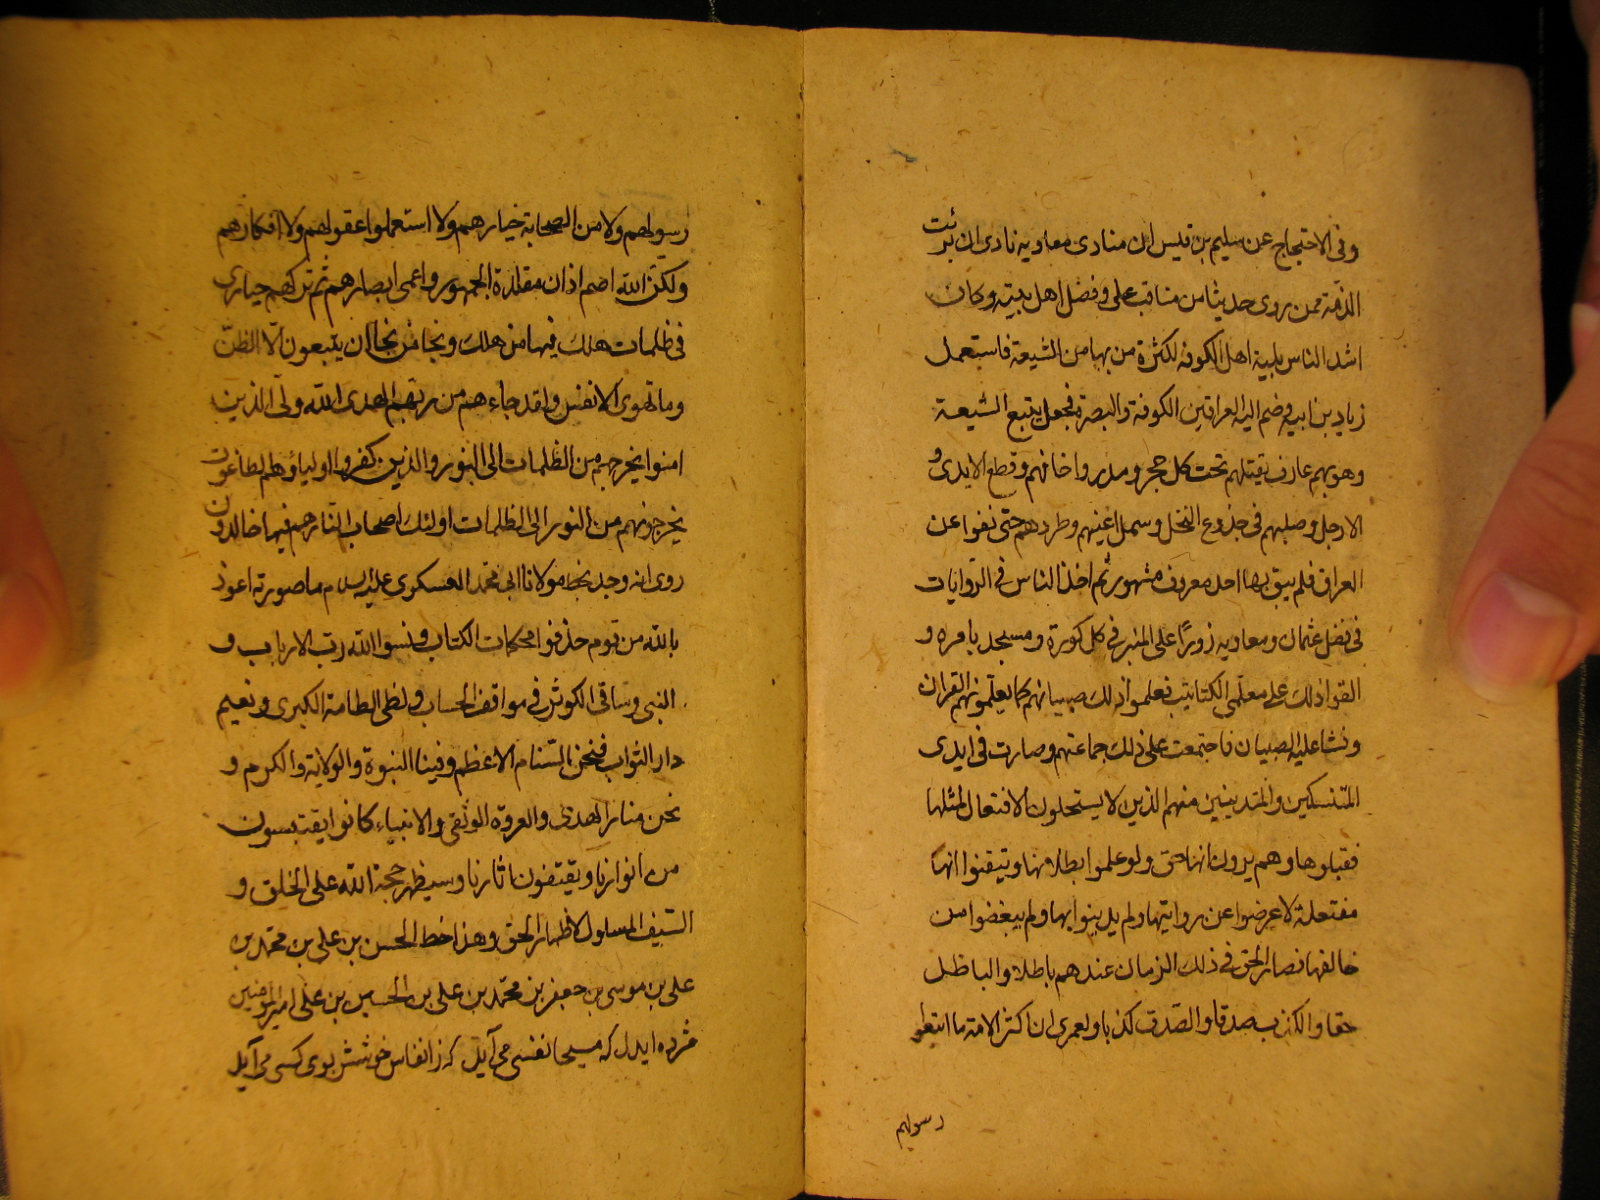 وفى الاحتجاج عن سليم بن قيس ان منادى معاويه نادى ان برئت
الذمة ممن روى حديثا من مناقب على وفضل اهل بيته وكان
اشد الناس بلية اهل الكوفه لكثرة من بها من الشيعة فاستعمل
زياد بن ابيه وضم اليه العراقين الكوفة والبصرة فجعل يتبع الشيعة
وهو بهم عارف يقتلهم تحت كل حجر ومدر واخافهم وقطع الايدى و
الارجل وصلبهم فى جذوع النخل وسمل اعينهم وطردهم حتى نفوا عن
العراق فلم يبق بها احد معروف مشهور ثم اخذ الناس فى الروايات
فى فضل عثمان ومعاويه زورًا على المنبر فى كل كورة ومسجد بامره و
القوا ذلك على معلمى الكتاتيب فعلموا ذلك صبيانهم كما يعلمونهم القران
ونشا عليه الصبيان فاجتمعت على ذلك جماعتهم وصارت فى ايدى
المتنسكين والمتدينين منهم الذين لا يستحلون الافتعال لمثلها
فقبلوها وهم يرون انها حق ولو علموا بطلانها وتيقنوا انها
مفتعلة لاعرضوا عن روايتها ولم يدينوا بها ولم يبغضوا من
خالفها فصار الحق فى ذلك الزمان عندهم باطلا والباطل
حقا والكذب صدقا والصدق كذبا ولعمرى ان اكثر الامة ما اتبعوا
رسولهم
رسولهم ولا من الصحابة خيارهم ولا استعملوا عقولهم ولا افكارهم
ولكن الله اصم اذان مقلدة الجمهور واعمى ابصارهم ثم تركهم حيارى
فى ظلمات هلك فيها من هلك ونجا من نجا ان يتبعون الا الظن
وما تهوى الانفس ولقد جاءهم من ربهم الهدى الله ولى الذين
امنوا يخرجهم من الظلمات الى النور والذين كفروا اولياؤهم الطاغوت
يخرجونهم من النور الى الظلمات اولئك اصحاب النار هم فيها خالدون
روى انه وجد بخط مولانا ابى محمد العسكرى عليه السلام ما صورته اعوذ
بالله من قوم حذفوا محكمات الكتاب ونسوا الله رب الارباب و
النبى وساقى الكوثر فى مواقف الحساب ولظى الطامة الكبرى ونعيم
دار الثواب فنحن السنام الاعظم وفينا النبوة والولاية والكرم و
نحن منار الهدى والعروة الوثقى والانبياء كانوا يقتبسون
من انوارنا ويقتفون اثارنا وسيظهر حجة الله على الخلق و
السيف المسلول لاظهار الحق وهذا خط الحسن بن على بن محمد بن
على بن موسى بن جعفر بن محمد بن على بن الحسين بن على امير المؤمنين
مژده ايدل كه مسيحا نفسى مى آيد كه ز انفاس خوشش بوى كسى مى آيد